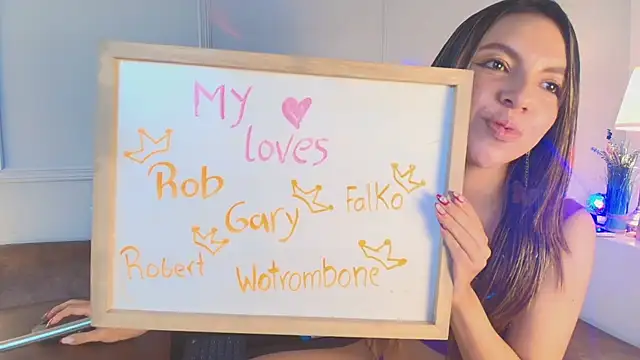 My ♥
loves
Rob
Gary
Falko
Robert
Wotrombone